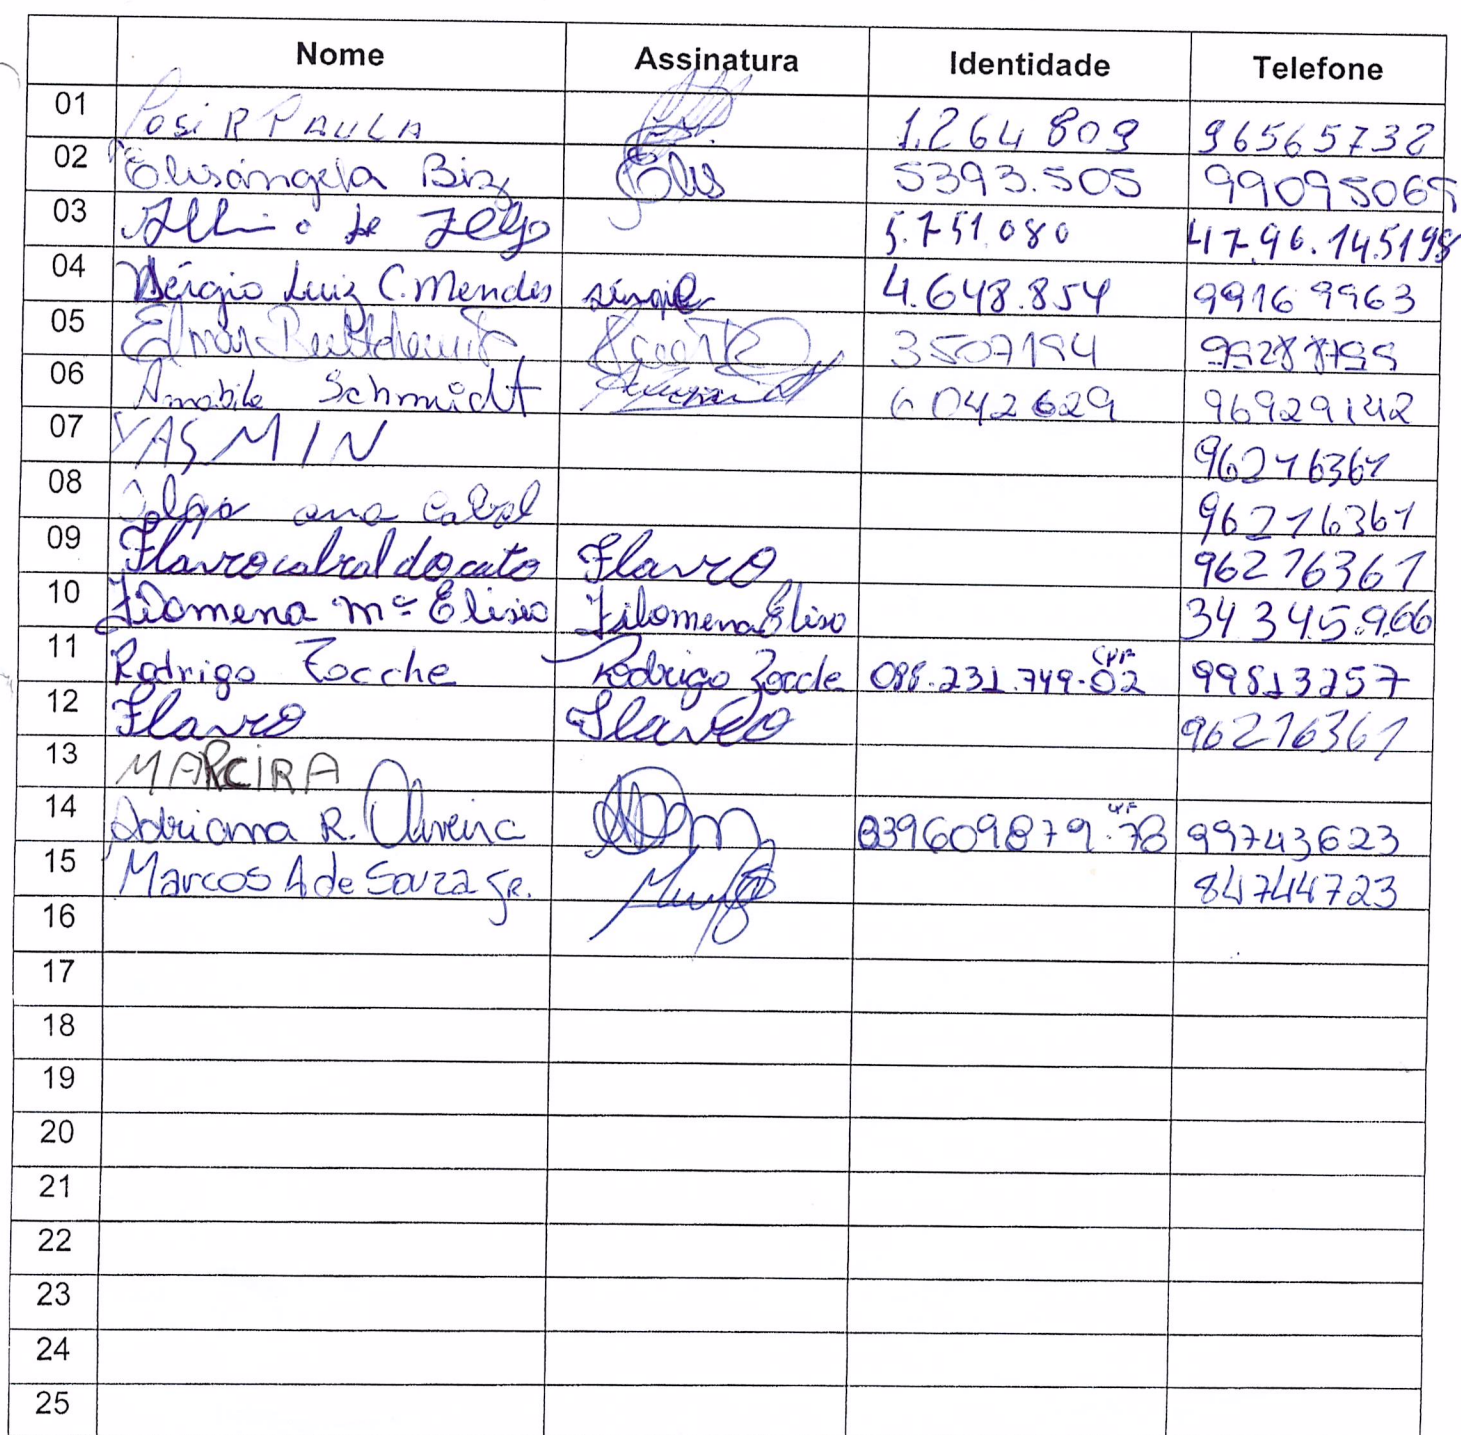 Nome Assinatura Identidade Telefone
01 Posi R PAULA 1.264 809 96565732
02 Elisângela Biz Elis 5393.505 99095065
03 5.751.080 47.96.145198
04 Sérgio Luiz C. Mendes Sérgio 4.648.854 99169963
05 3507194
06 Amabile Schmidt 6042629 96929142
07 YASMIN 96276361
08 ana Cabral 96276361
09 Flavio cabral do Flavio 96276361
10 Filomena Mª Elisio Filomena Eliso 34345.966
11 Rodrigo Zocche Rodrigo Zocche 088.231.749-02 CPF 99813257
12 Flavio Flavio 96276361
13 MARCIRA
14 Adriana R. Oliveira 039609879.78 CPF 99743623
15 Marcos A de Souza Jr. 84744723
16
17
18
19
20
21
22
23
24
25